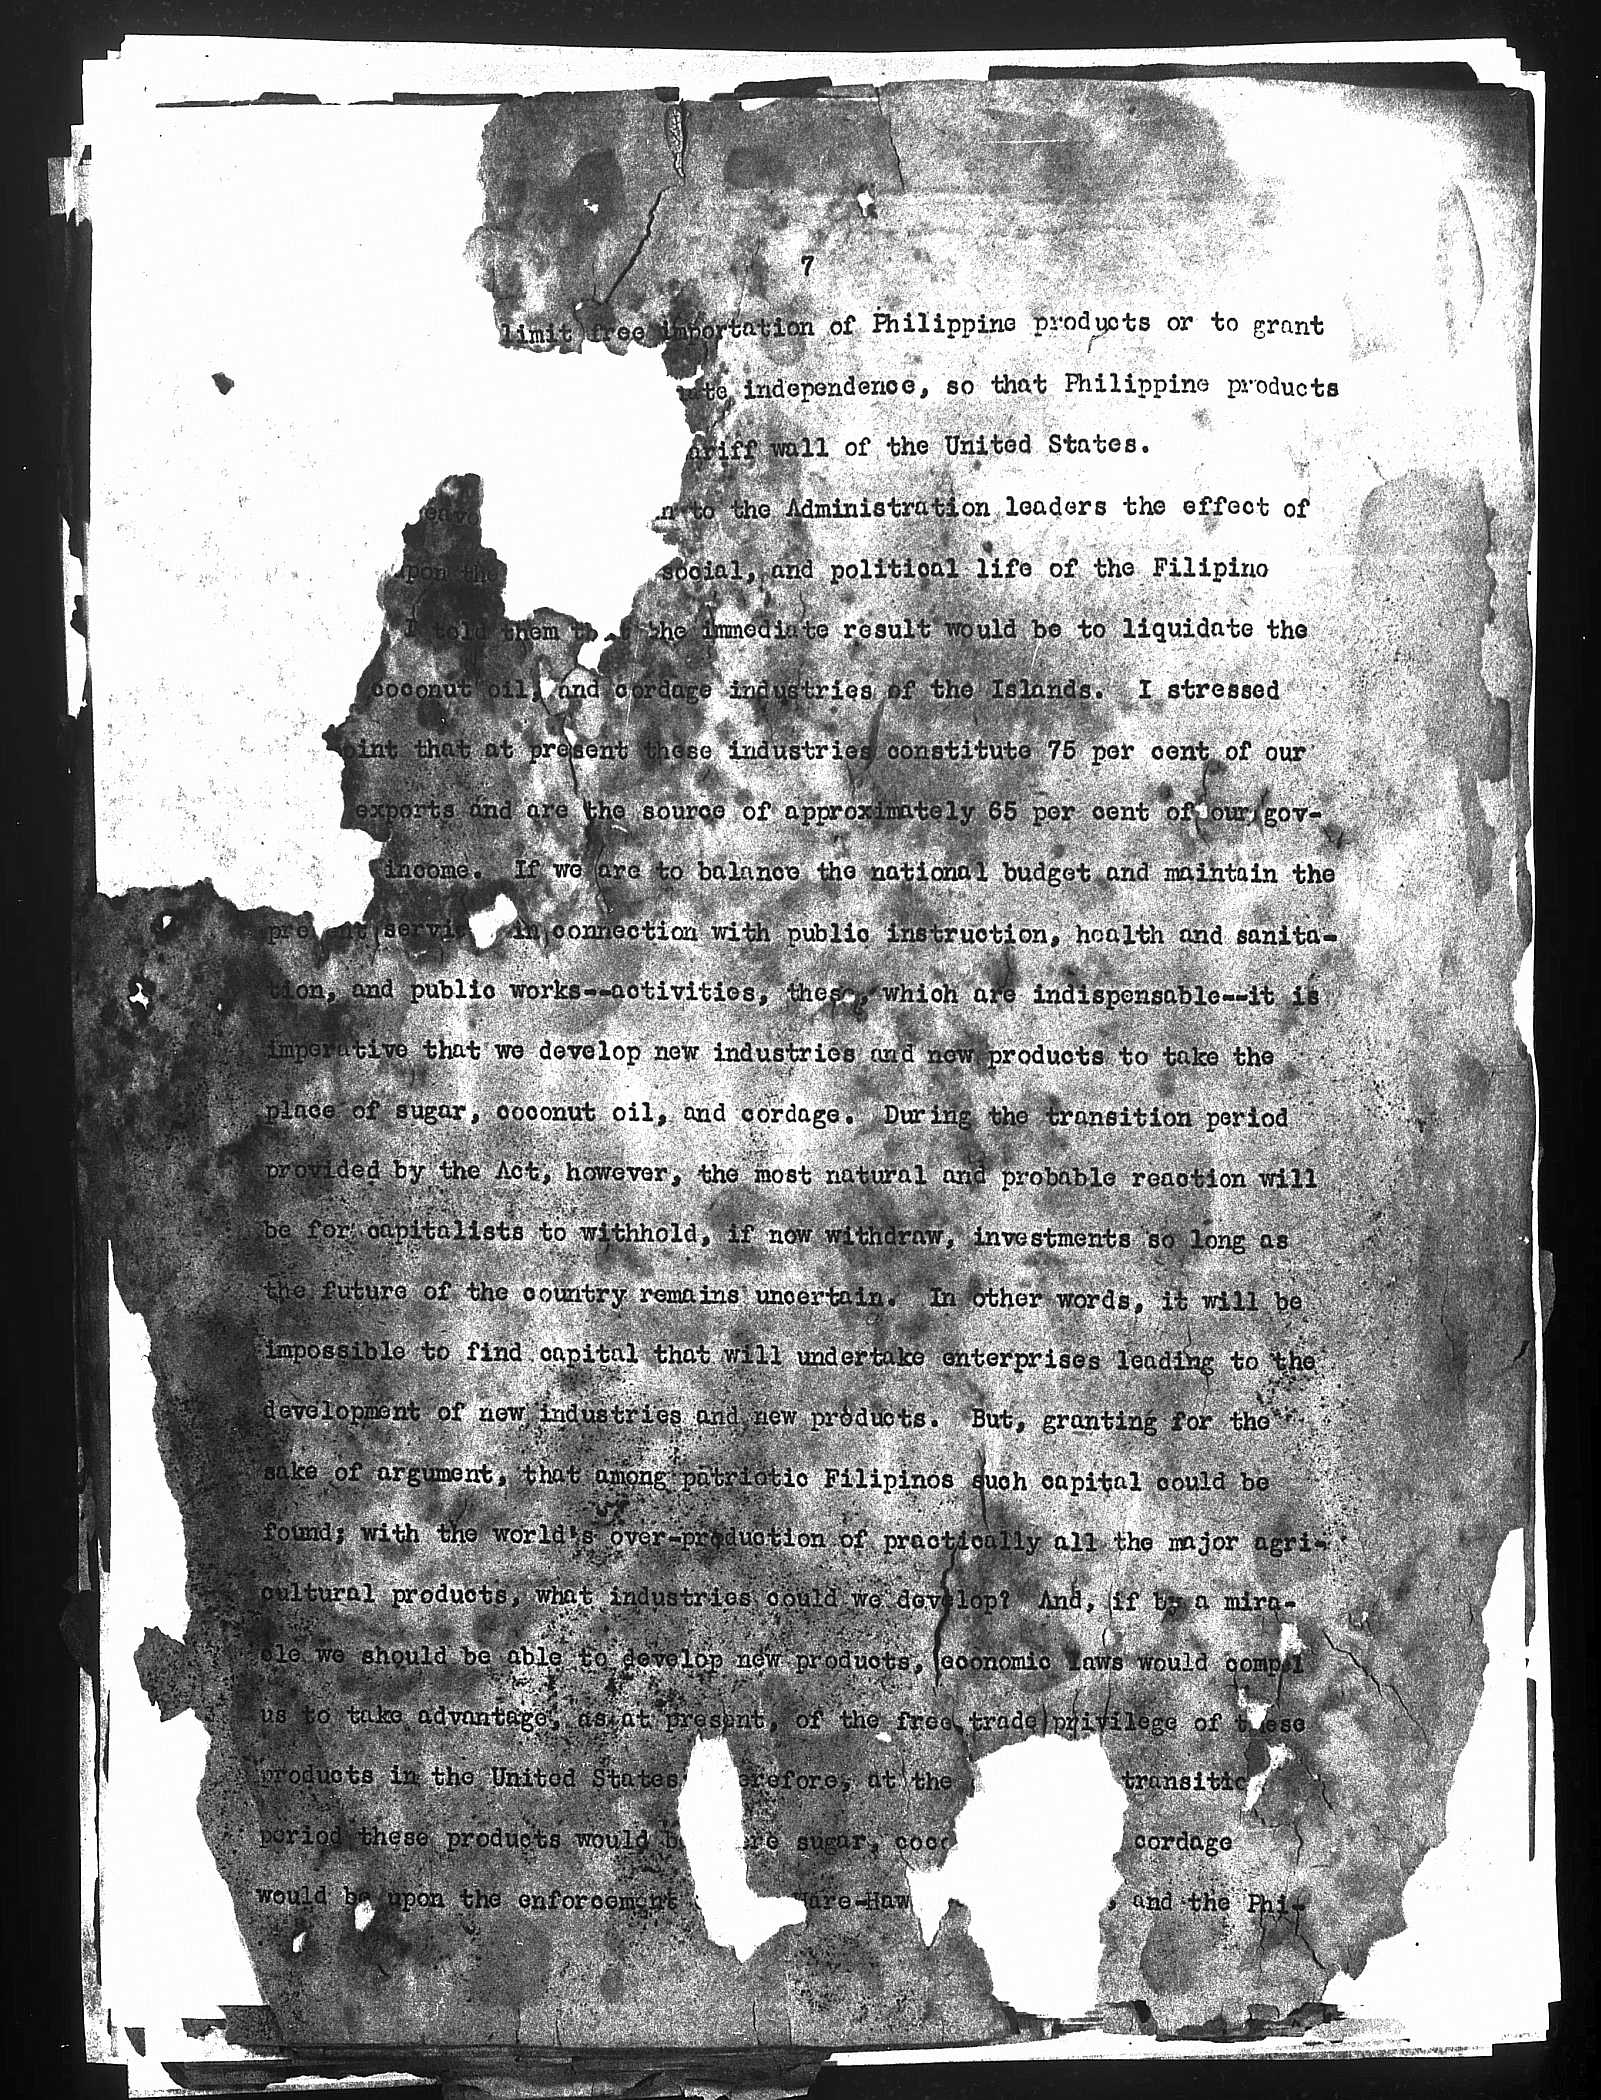 7
limit free importation of Philippine products or to grant
independence, so that Philippine products
wall of the United States.
to the Administration leaders the effect of
upon the social, and political life of the Filipino
I told them that the immediate result would be to liquidate the
coconut oil, and cordage industries of the Islands. I stressed
that at present these industries constitute 75 per cent of our
exports and are the source of approximately 65 per cent of our gov-
income. If we are to balance the national budget and maintain the
present in connection with public instruction, health and sanita-
tion, and public works--activities, these, which are indispensable--it is
imperative that we develop new industries and new products to take the
place of sugar, coconut oil, and cordage. During the transition period
provided by the Act, however, the most natural and probable reaction will
be for capitalists to withhold, if now withdraw, investments so long as
the future of the country remains uncertain. In other words, it will be
impossible to find capital that will undertake enterprises leading to the
development of new industries and new products. But, granting for the
sake of argument, that among patriotic Filipinos such capital could be
found; with the world's over-production of practically all the major agri-
cultural products, what industries could we develop? And, if by a mira-
cle we should be able to develop new products, economic laws would compel
us to take advantage, as at present, of the free trade privilege of these
products in the United States at the
period these products would sugar, cordage
would be upon the enforcement , and the Phi-